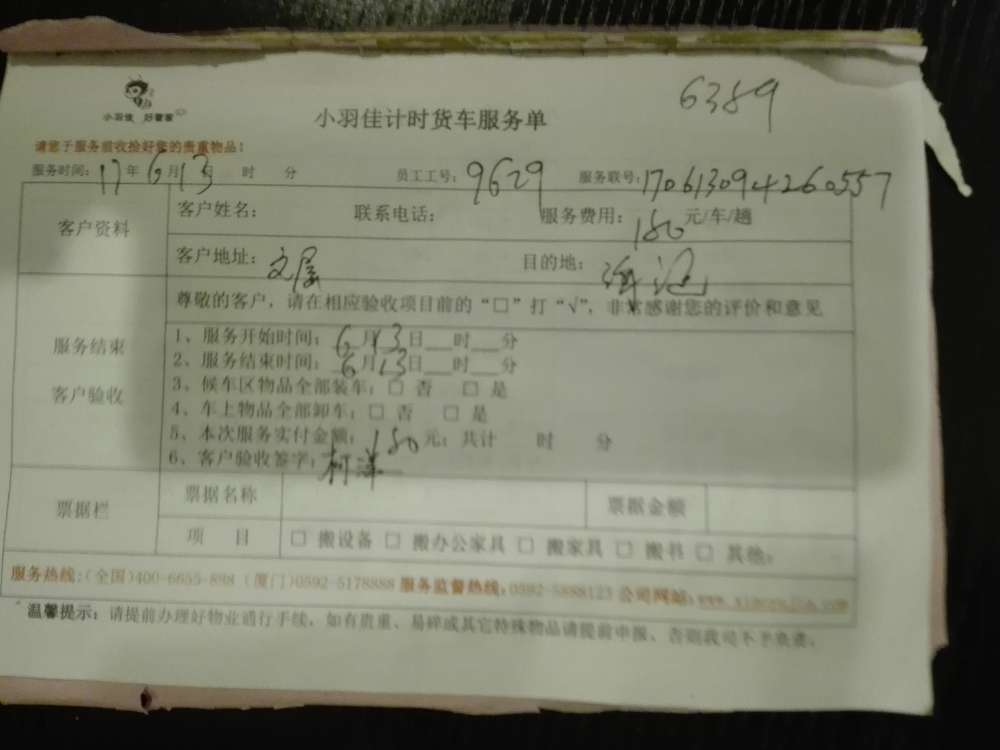 6389
小羽佳 好管家
小羽佳计时货车服务单
请您于服务前收拾好您的贵重物品！
服务时间：17年6月13日 时 分 员工工号：9629 服务联号：170613094260557
客户资料
客户姓名： 联系电话： 服务费用：180元/车/趟
客户地址：文屏 目的地：
尊敬的客户，请在相应验收项目前的“□”打“√”，非常感谢您的评价和意见
服务结束
客户验收
1、服务开始时间：6月13日__时__分
2、服务结束时间：6月13日__时__分
3、候车区物品全部装车：□ 否 □ 是
4、车上物品全部卸车：□ 否 □ 是
5、本次服务实付金额：180元；共计 时 分
6、客户验收签字：柯洋
票据栏
票据名称 票据金额
项 目 □ 搬设备 □ 搬办公家具 □ 搬家具 □ 搬书 □ 其他：
服务热线：（全国）400-6655-898 （厦门）0592-5178888 服务监督热线：0592-5888123 公司网站：
温馨提示：请提前办理好物业通行手续，如有贵重、易碎或其它特殊物品请提前申报，否则我司不予负责。